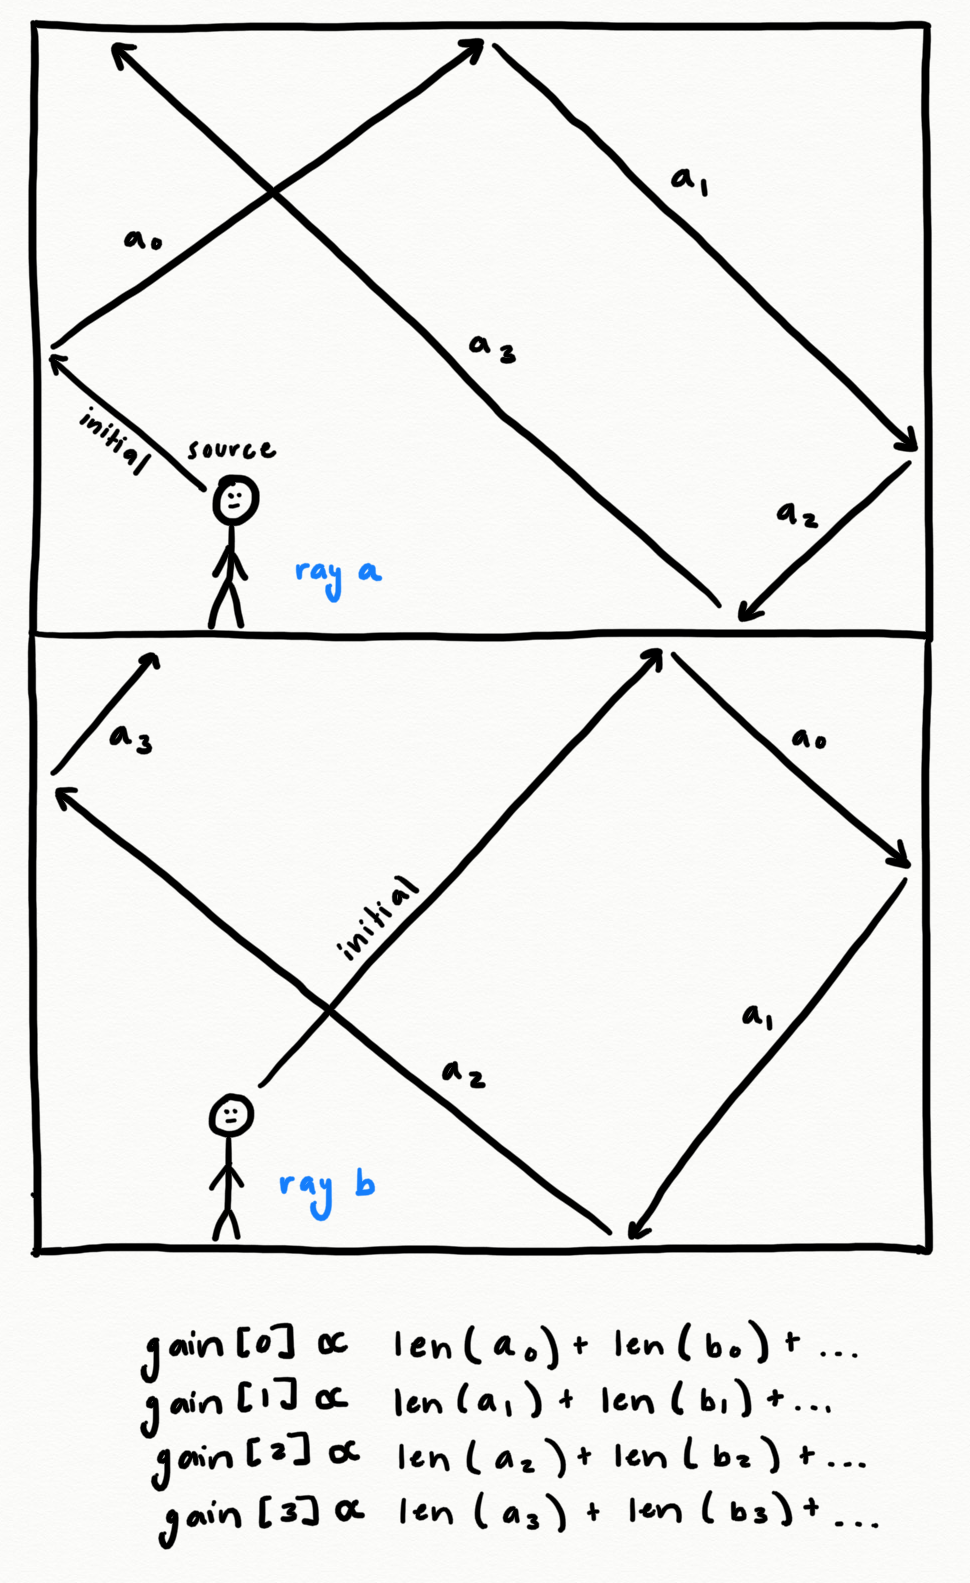 a₀
a₁
a₃
initial
source
a₂
ray a
a₃
a₀
initial
a₁
a₂
ray b
gain [0] ∝ len(a₀) + len(b₀) + ...
gain [1] ∝ len(a₁) + len(b₁) + ...
gain [2] ∝ len(a₂) + len(b₂) + ...
gain [3] ∝ len(a₃) + len(b₃) + ...